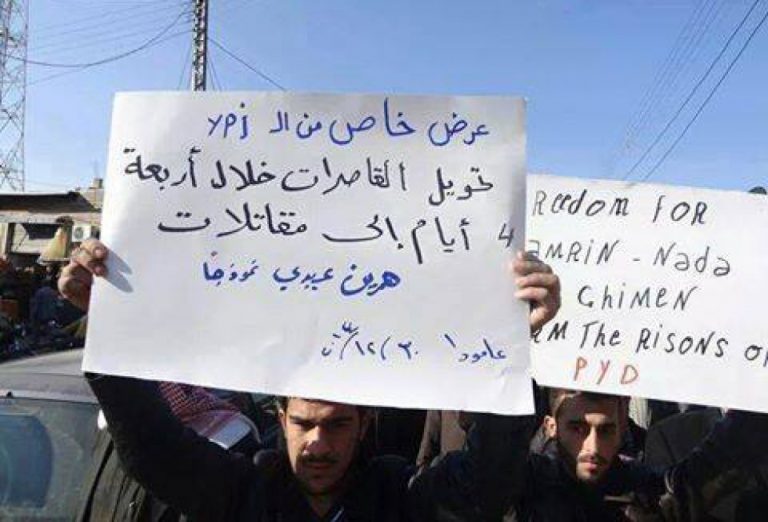 عرض خاص من الـ YPJ
تحويل القاصرات خلال أربعة
4 أيام إلى مقاتلات
هرين عبدي نموذجاً
عامودا ٣٠/١٢/
Reedom FOR
AMRIN - Nada
GHIMEN
The RISONS OF
PYD